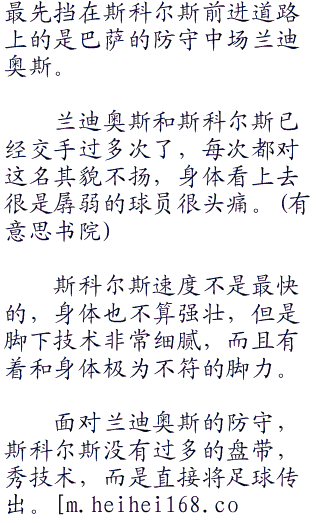 最先挡在斯科尔斯前进道路
上的是巴萨的防守中场兰迪
奥斯。
兰迪奥斯和斯科尔斯已
经交手过多次了，每次都对
这名其貌不扬，身体看上去
很是孱弱的球员很头痛。(有
意思书院)
斯科尔斯速度不是最快
的，身体也不算强壮，但是
脚下技术非常细腻，而且有
着和身体极为不符的脚力。
面对兰迪奥斯的防守，
斯科尔斯没有过多的盘带，
秀技术，而是直接将足球传
出。[m.heihei168.co